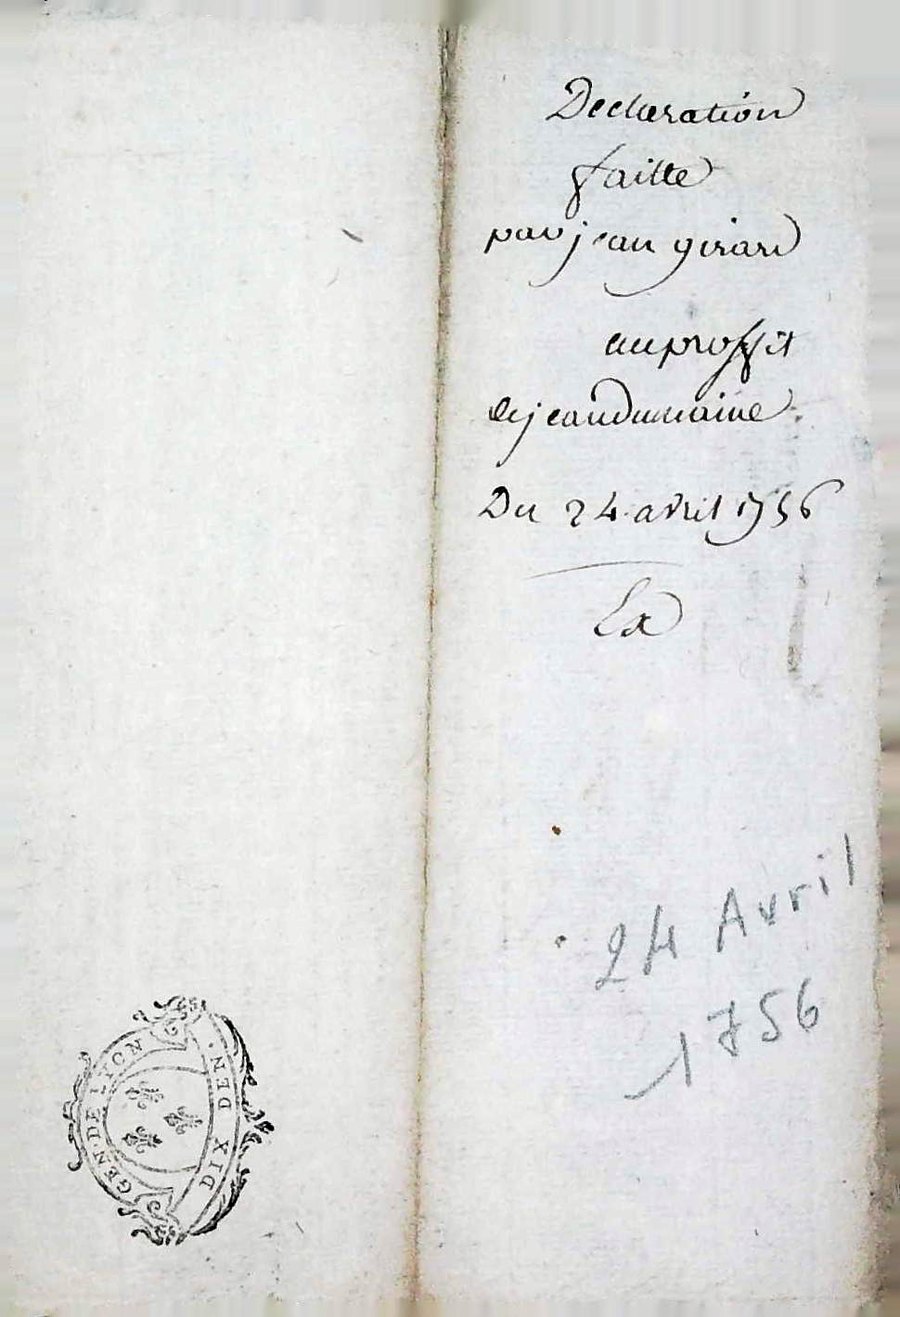 Declaration
faitte
par jean girard
au proffit
de jean dumaine
Du 24 avril 1756
Ex
24 Avril
1756
GEN. DE LYON
DIX DEN.